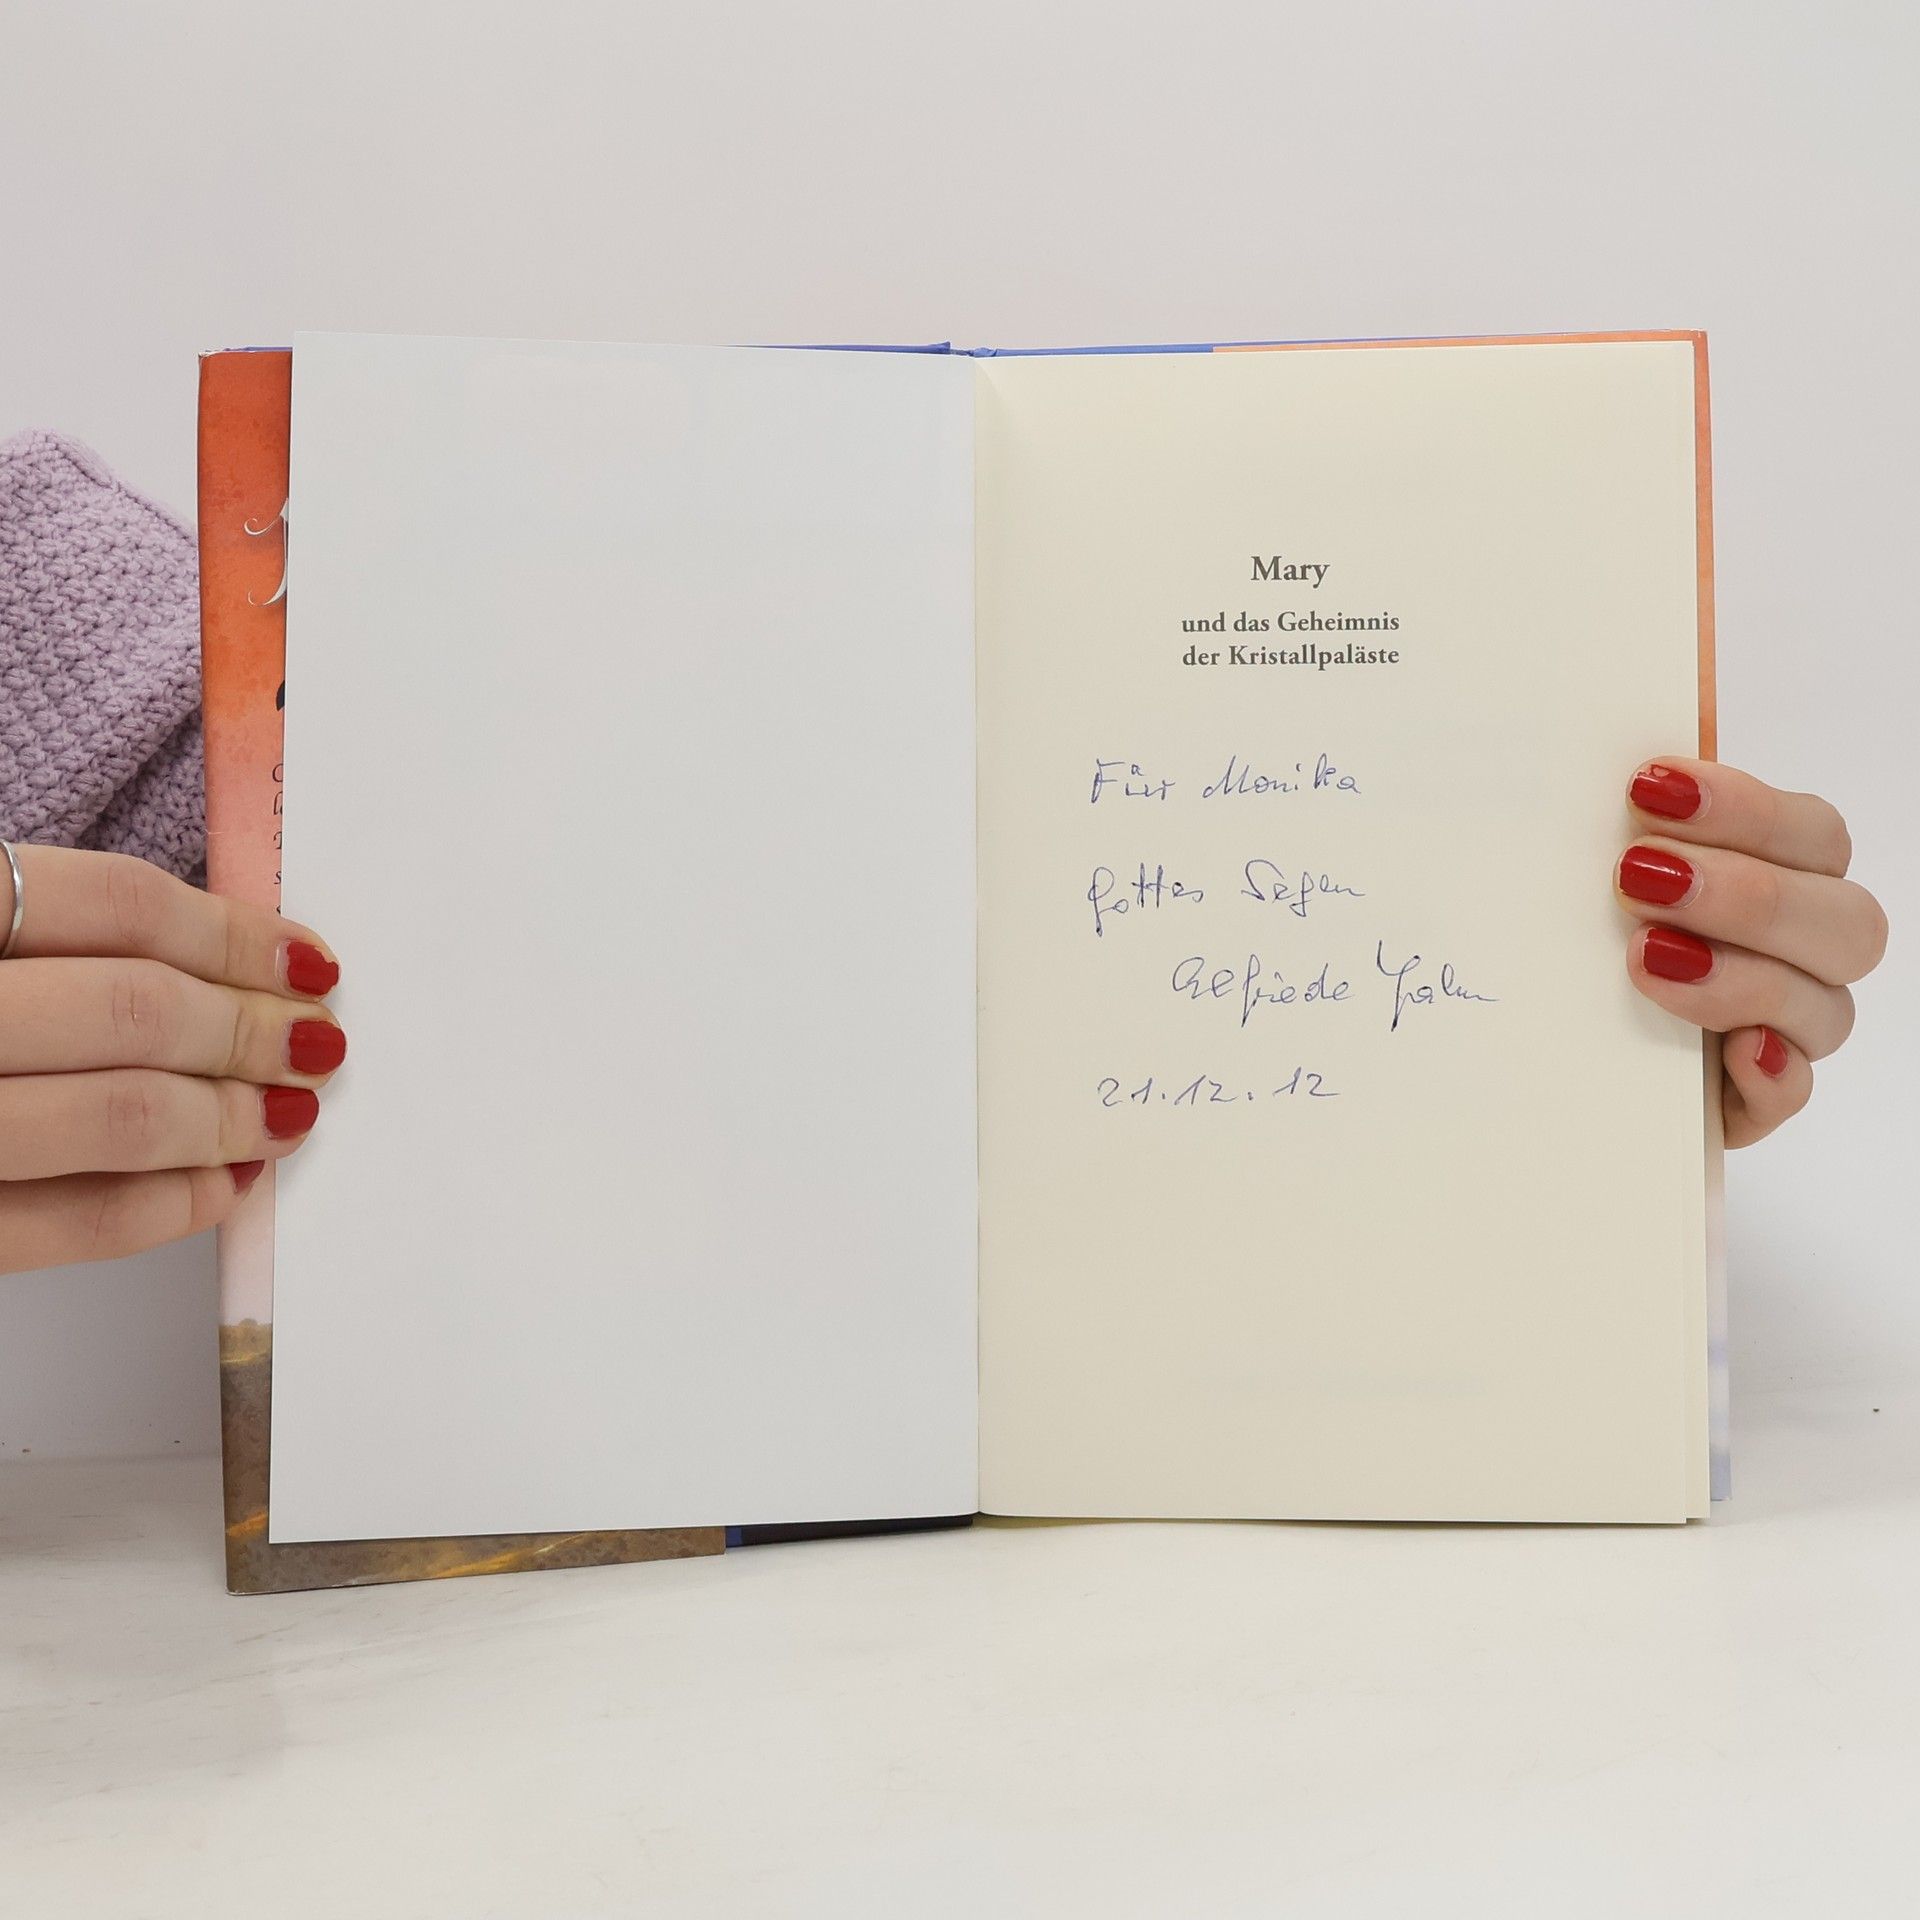 Mary
und das Geheimnis
der Kristallpaläste
Für Monika
Gottes Segen
Elfriede
21.12.12